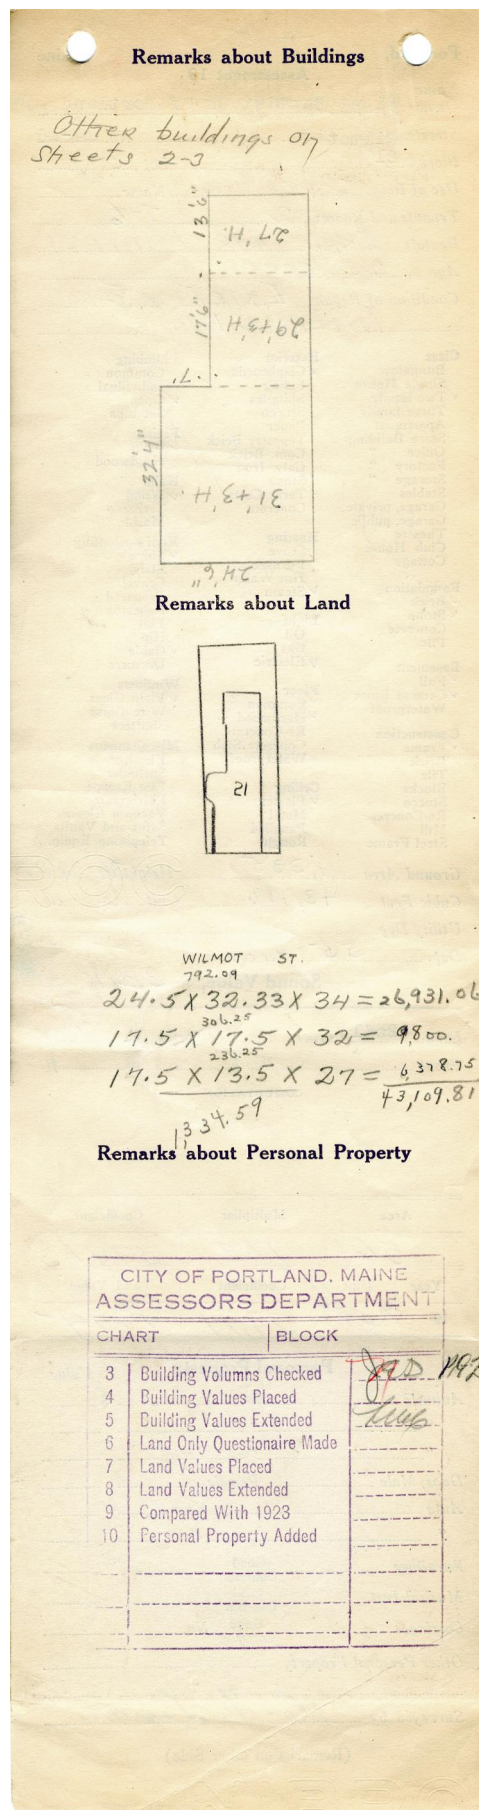 Remarks about Buildings
Other buildings on
Sheets 2-3
13'6"
27'H.
17'6"
29'+3'H
7'
32'4"
31'+3'H.
24'6"
Remarks about Land
21
WILMOT ST.
792.09
24.5 X 32.33 X 34 = 26,931.06
306.25
17.5 X 17.5 X 32 = 9,800.
236.25
17.5 X 13.5 X 27 = 6,378.75
43,109.81
1,334.59
Remarks about Personal Property
CITY OF PORTLAND, MAINE
ASSESSORS DEPARTMENT
CHART BLOCK
3 Building Volumns Checked
4 Building Values Placed
5 Building Values Extended
6 Land Only Questionaire Made
7 Land Values Placed
8 Land Values Extended
9 Compared With 1923
10 Personal Property Added